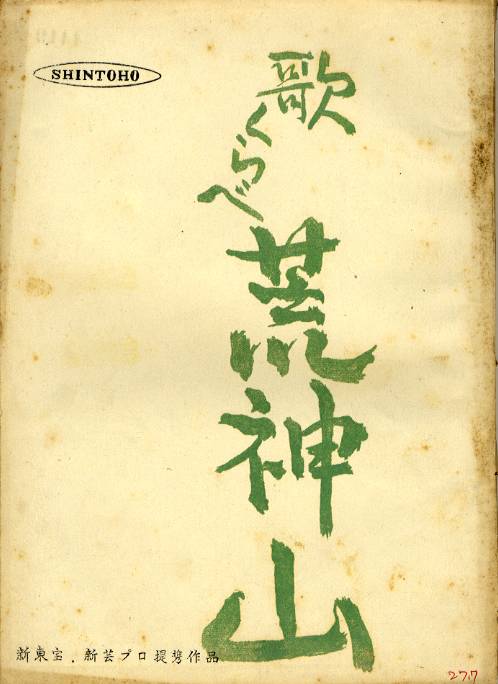 SHINTOHO
歌くらべ
荒神山
新東宝．新芸プロ提携作品
27.7